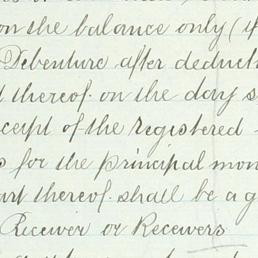 on the balance only (if
Debenture after deduct
thereof. on the day s
ceipt of the registered
for the principal mon
art thereof. shall be a g
Receiver or Receivers